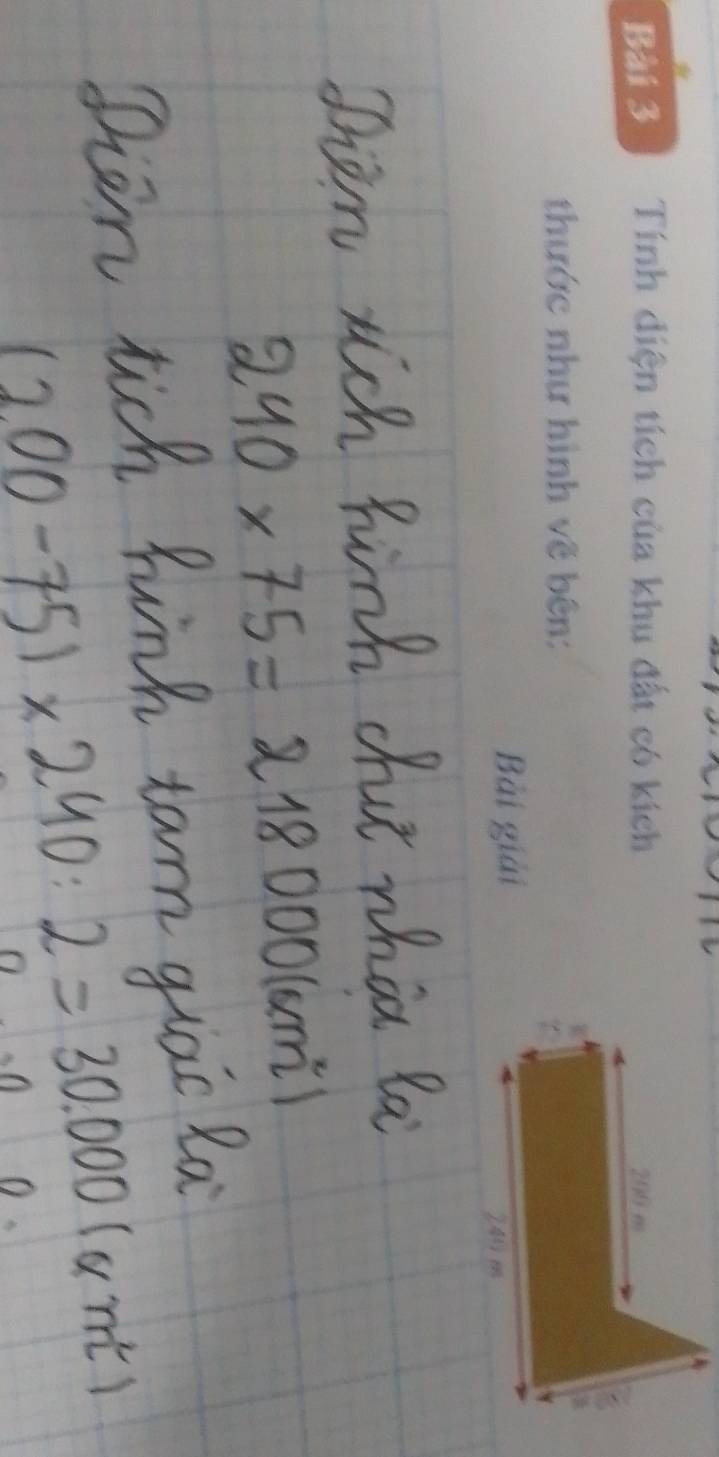 Bài 3 Tính diện tích của khu đất có kích
thước như hình vẽ bên:
75 m
200 m
240 m
Bài giải
Diện tích hình chữ nhật là
240 x 75 = 218 000 (cm²)
Diện tích hình tam giác là
(200 - 75) x 240 : 2 = 30.000 (cm²)